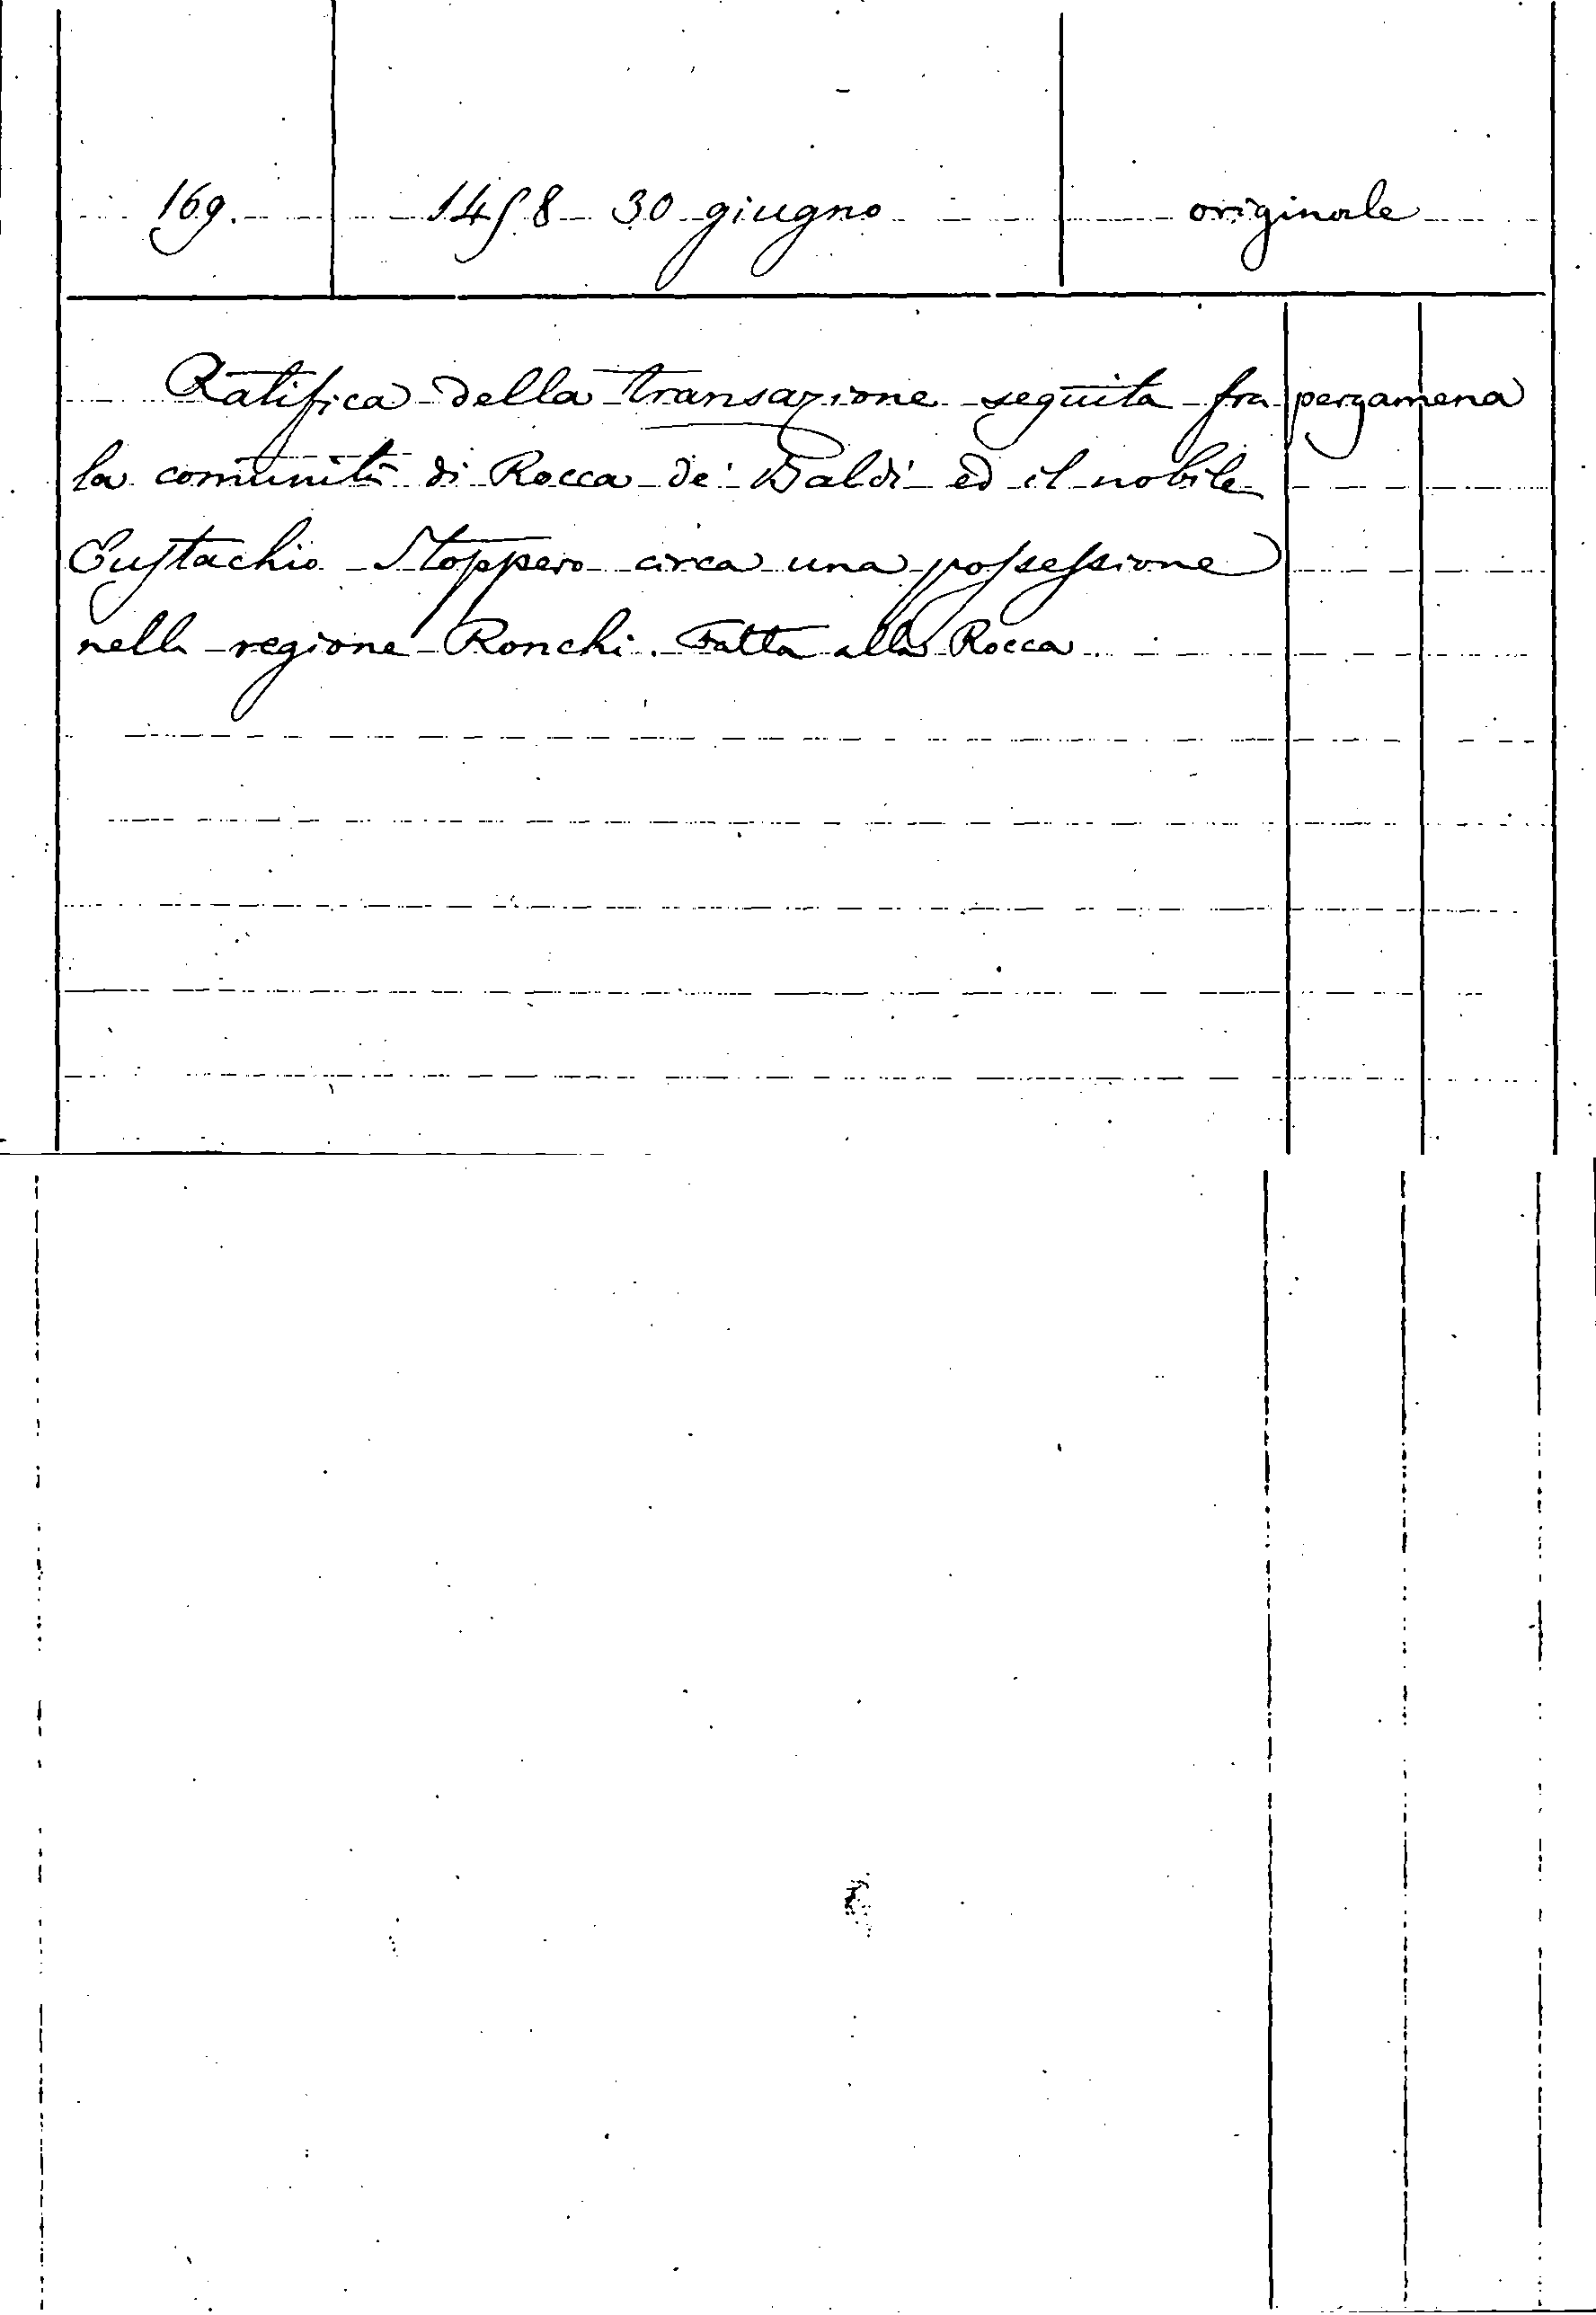 169. 1458 30 giugno originale
Ratifica della transazione seguita fra pergamena
la comunità di Rocca de' Baldi ed il nobile
Eustachio Stoppero circa una possessione
nella regione Ronchi. Fatta alla Rocca.